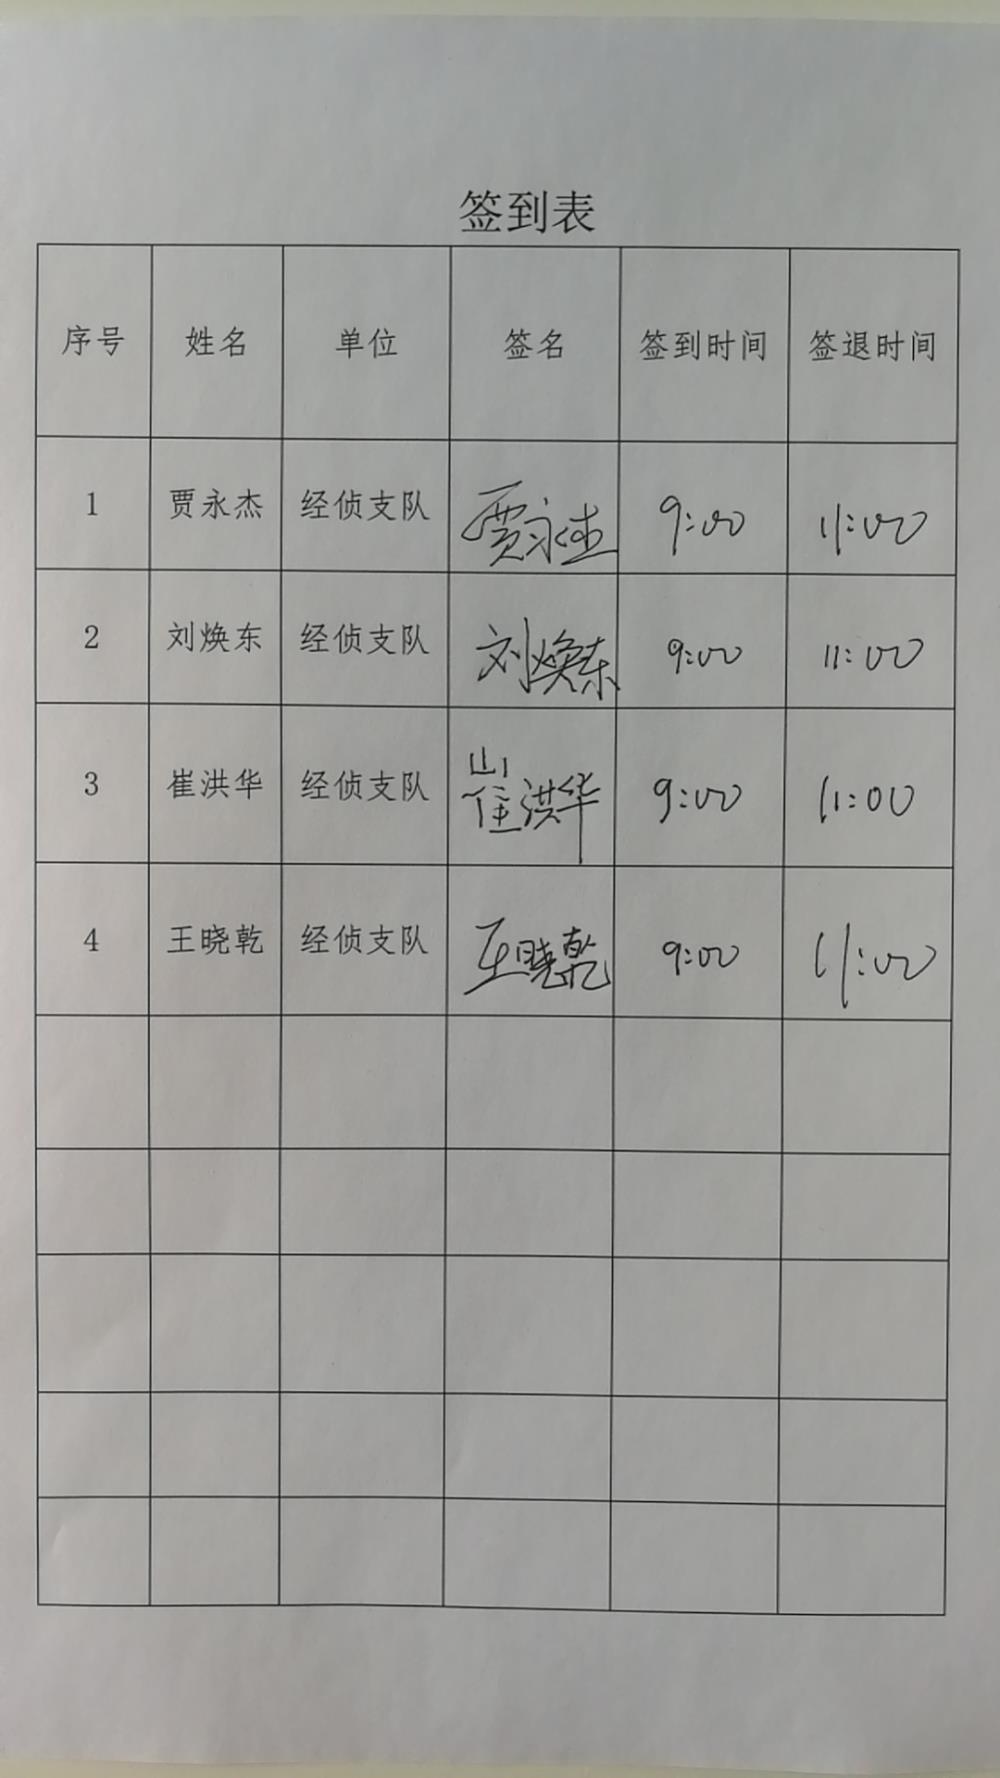 签到表
序号 姓名 单位 签名 签到时间 签退时间
1 贾永杰 经侦支队 贾永杰 9:00 11:00
2 刘焕东 经侦支队 刘焕东 9:00 11:00
3 崔洪华 经侦支队 崔洪华 9:00 11:00
4 王晓乾 经侦支队 王晓乾 9:00 11:00